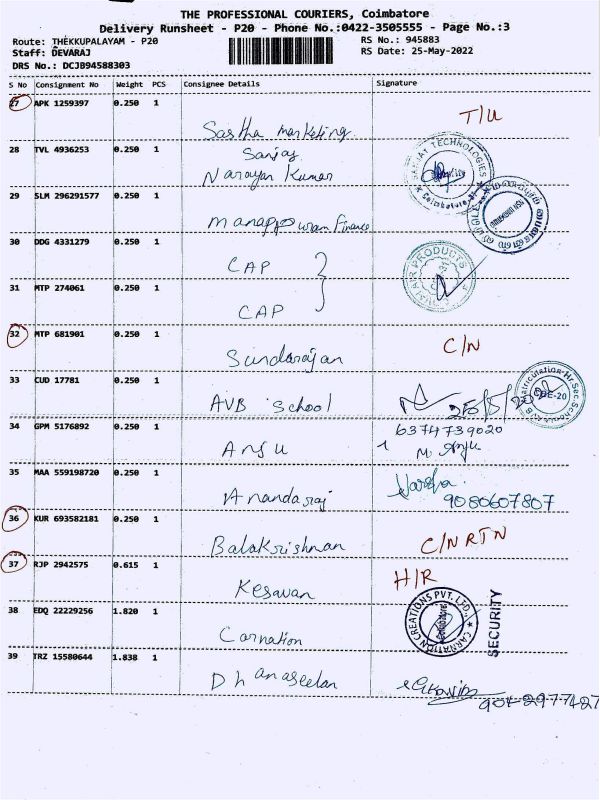 THE PROFESSIONAL COURIERS, Coimbatore
Delivery Runsheet - P20 - Phone No.:0422-3505555 - Page No.:3
Route: THEKKUPALAYAM - P20 RS No.: 945883
Staff: DEVARAJ RS Date: 25-May-2022
DRS No.: DCJB94588303
S No Consignment No Weight PCS Consignee Details Signature
27 APK 1259397 0.250 1 Sastha marketing T/U
28 TVL 4936253 0.250 1 Sanjay
Narayan Kumar
SANJAY TECHNOLOGIES Coimbatore
29 SLM 296291577 0.250 1 manappuram Finance
30 DDG 4331279 0.250 1 CAP
AIR PRODUCTS
31 MTP 274061 0.250 1 CAP
32 MTP 681901 0.250 1 Sundarajan C/N
33 CUD 17781 0.250 1 AVB School 25/5/2022
Matriculation Hr Sec School
34 GPM 5176892 0.250 1 Anju 6374739020
M. Anju
35 MAA 559198720 0.250 1 Anandaraj Varsha
9080607807
36 KUR 693582181 0.250 1 Balakrishnan C/N RTN
37 RJP 2942575 0.615 1 Kesavan H/R
38 EDQ 22229256 1.820 1 Carnation CARNATION CREATIONS PVT. LTD., Coimbatore SECURITY
39 TRZ 15580644 1.838 1 Dhanaseelan